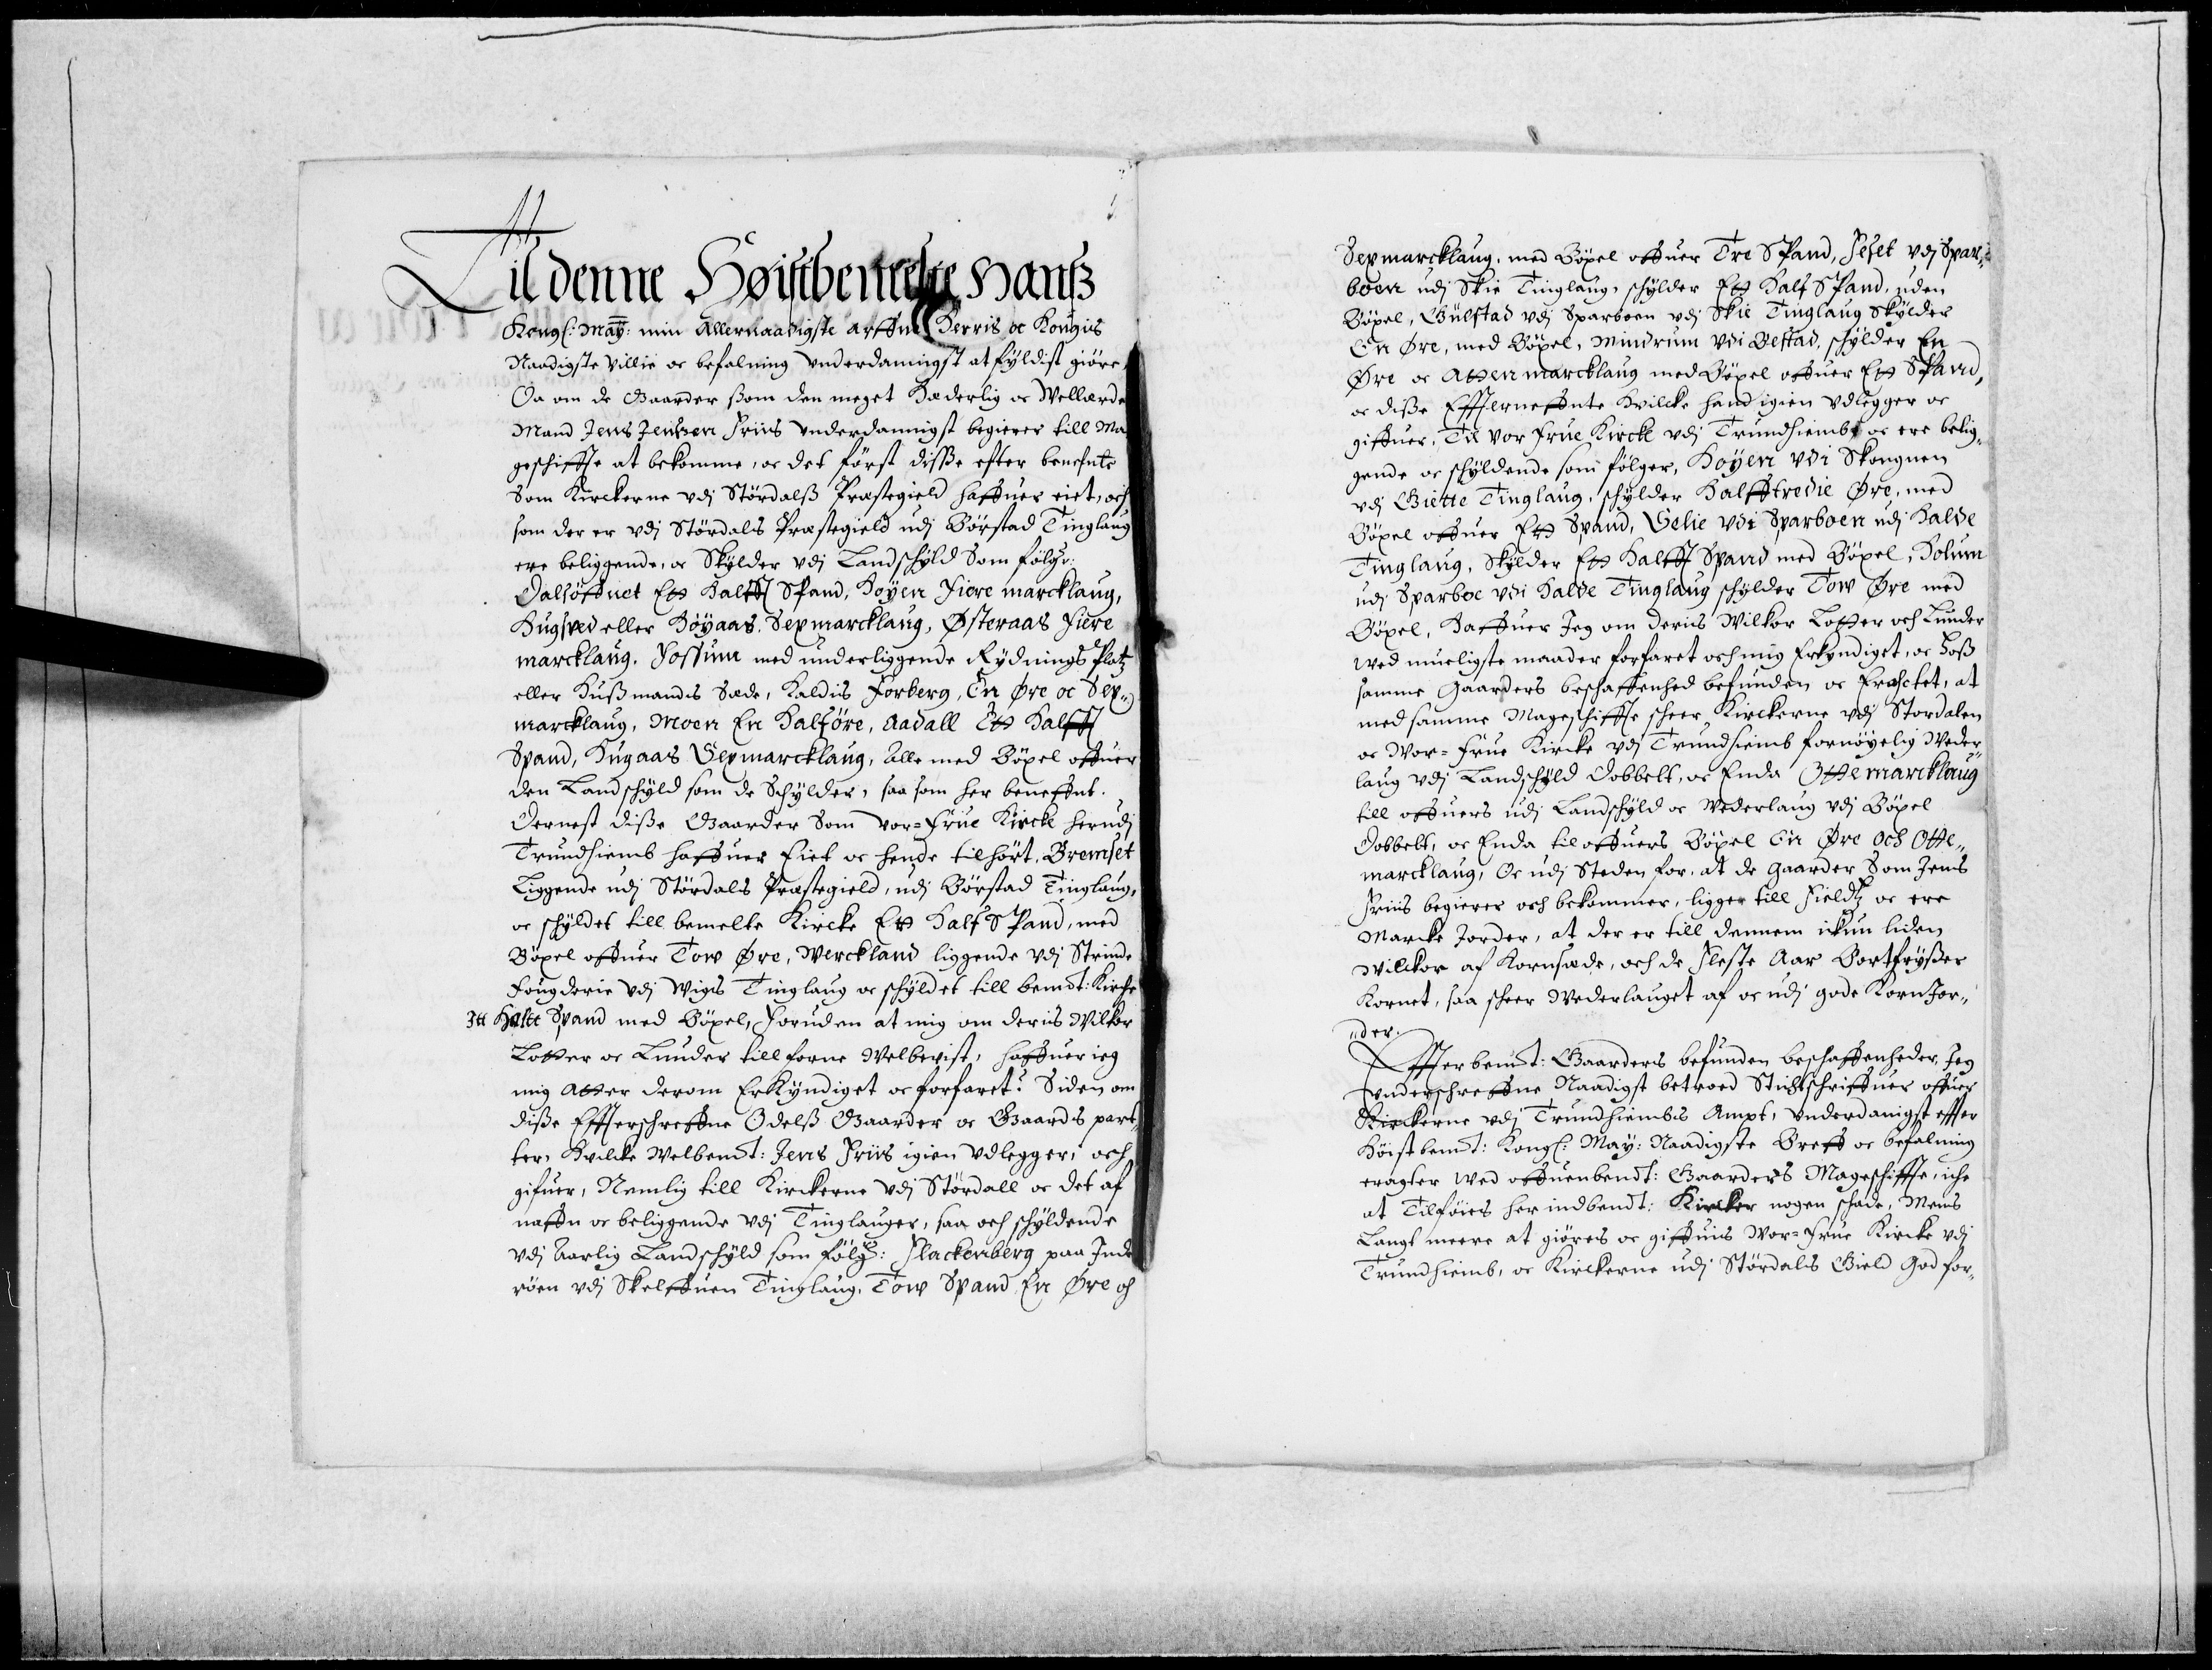 Til denne Høistbemelte Hanß
Kongl: May: min Allernaadigste arffue Herris oc Kongis
Naadigste Villie oc befalning underdannigst at fyldist giöre,
Da om de Gaarder ßom den meget Hæderlig oc Wellærde
Mand Jens Jenßen Friis underdannigst begierer till Ma¬
geschiffte at bekomme, oc det först disße efter benefnte
Som Kirckerne udj Stördalß Præstegield haffuer eiet, och
som der er vdj Stördals Præstegield udj Börstad Tinglaug
ere beliggende, oc Skylder vdj Landschyld Som fölger:
Dalsöffuet Ett Halfft Spand, Høyen Fiere marcklaug,
Hugsved eller Høyaas, Sexmarcklaug, Østeraas Fiere
marcklaug, Fossum med underliggende Rydnings Platz
eller Hußmands Sæde, Kaldis Forberg, En Øre oc Sex¬
marcklaug, Moen En Halföre, Aadall Ett Halfft
Spand, Hugaas Sexmarcklaug, Alle med Böxel offuer
den Landschyld som de Schylder, saa som her beneffnt.
Dernest disße Gaarder Som Vor=Frue Kircke herudj
Trundhiemb haffuer Eiet oc hende tilhört, Bremset
Liggende udj Stördals Præstegield, udj Börstad Tinglaug,
oc schyldet till bemelte Kircke Ett Half SPand, med
Böxel offuer Tow Øre, Werckland liggende vdj Strinde
Fougderie vdj Wigs Tinglaug oc schyldet till bemt: Kirche
Itt Halfft Spand med Böxel, Foruden at mig om deris Wilkor
Lotter oc Lunder till forne Welbevist, haffuer ieg
mig atter derom Erkyndiget oc forfaret: Siden om
diße Effterschreffne Odelß Gaarder oc Gaards part¬
ter, Huilcke Welbemt: Jens Friis igien Vdlegger, och
gifuer, Nemlig till Kirckerne vdj Stördall oc det af
naffn oc beliggende vdj Tinglauger, saa och schyldende
vdj Aarlig Landschyld som fölger: Flackenberg paa Inde
röen vdj Skelffuen Tinglaug, Tow Spand En Øre och
Sexmarcklaug, med Böxel offuer Tre SPand, Selset vdj Spar¬
boen udj Skie Tinglaug, schylder Ett Half SPand, uden
Böxel, Gulstad vdj Sparboen vdj Skie Tinglaug Skylder
En Øre, med Böxel, Mindrum Vdi Bestad, schylder En
Øre oc Attenmarcklaug med Böxel offuer Ett SPand,
oc disße Effterneffnte Huilcke hand igien Vdlegger oc
giffuer, Til Vor Frue Kircke vdj Trundhiemb oc ere belig¬
gende oc schyldende som fölger, Høyen Vdi Skongnen
vdj Giette Tinglaug, schylder Halfftredie Øre, med
Böxel offuer Ett Spand, Selie Vdi Sparboen udj Halde
Tinglaug, Skylder Ett Halfft Spand med Böxel, Holum
udj Sparboe Vdi Halde Tinglaug schylder Tow Øre med
Böxel, Haffuer Jeg om deris Wilkor Lotter och Lunder
Wed mueligste maader forfaret och mig Erkyndiget, oc hoß
samme Gaarders beschaffenhed befunden oc Eractet, at
med samme Mageschiffte scheer Kirckerne vdj Stordalen
oc Wor=Frue Kircke vdj Trundhiemb fornöyelig Weder¬
laug vdj Landschyld Dobbelt, oc Enda Ottemarcklaug
till offuers udj Landschyld oc Wederlaug vdj Böxel
Dobbelt, oc Enda til offuers Böxel En Øre Och Otte¬
marcklaug, Oc udj Steden for, at de Gaarder Som Jens
Friis begierer och bekommer, ligger till Fieldtz oc ere
Marcke Jorder, at der er till dennem ikun liden
Wilckor af Kornsæde, och de fleste Aar Bortfrysßer
Kornet, saa scheer Wederlauget af oc udj gode KornJor¬
der.
Effter bemt: Gaarders befunden beschaffenheder, Jeg
Underschreffne Naadigst betroed Stichtschriffuer offuer
Kirckerne vdj Trundhiembs Ampt, Underdanigst effter
Höistbemt: Kongl: May: Naadigste Breff oc befalning
eragter Wed offuenbemdt: Gaarders Mageschiffte, iche
at Tilföies her indbemdt: Kircker nogen schade, Mens
Langt meere at giöres oc giffuis Wor=Frue Kircke vdj
Trundhiemb, oc Kirckerne udj Stördals Gield God for¬